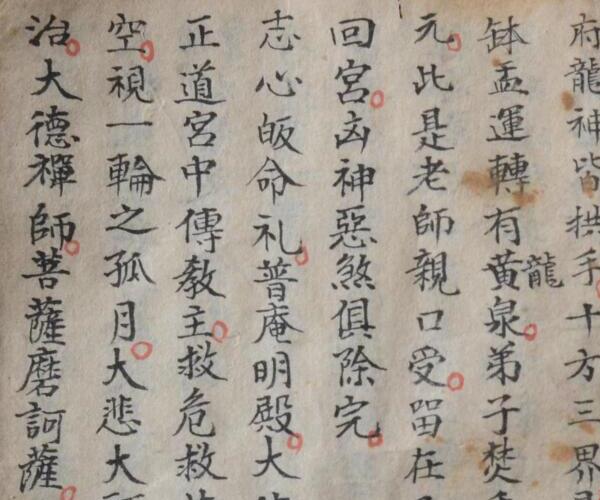 府龍神皆拱手十方三界
鉢盂運轉有黃泉弟子焚
龍
元此是老師親口受留在
回宮凶神惡煞俱除完
志心皈命礼普庵明殿大
正道宮中傳教主救危救
空視一輪之孤月大悲大
治大德禪師菩薩磨訶薩